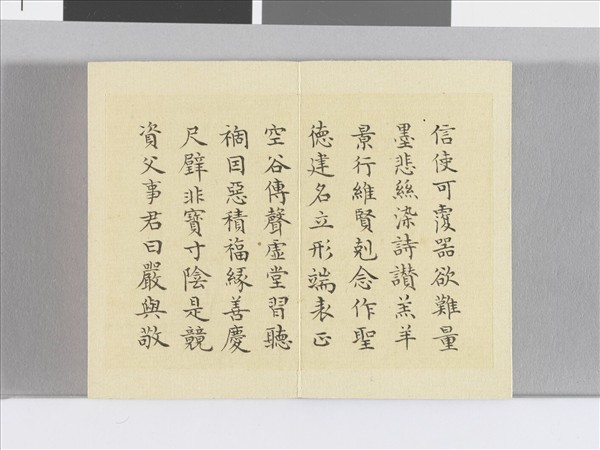 信使可覆器欲難量
墨悲絲染詩讃羔羊
景行維賢剋念作聖
徳建名立形端表正
空谷傳聲虛堂習聽
禍因惡積福緣善慶
尺璧非寶寸陰是競
資父事君曰嚴與敬